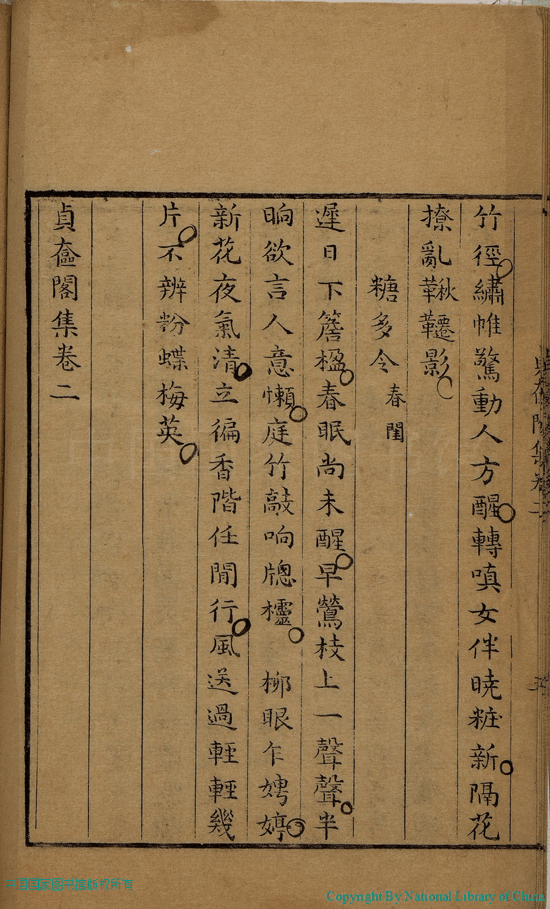 竹徑繡帷驚動人方醒轉嗔女伴曉粧新隔花
撩亂鞦韆影
糖多令 春閨
遲日下簷楹春眠尚未醒早鶯枝上一聲聲半
晌欲言人意懶庭竹敲响牕櫺 柳眼乍娉婷
新花夜氣清立徧香階任閒行風送過輕輕幾
片不辨粉蝶梅英
貞奩閣集卷二
Copyright By National Library of China